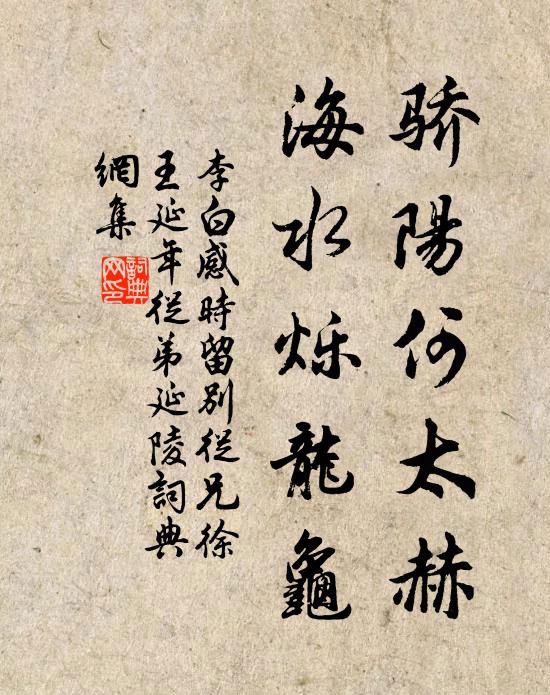 骄陽何太赫
海水烁龍龜
李白感時留别從兄徐
王延年從弟延陵詞典
網集
詞典
网印